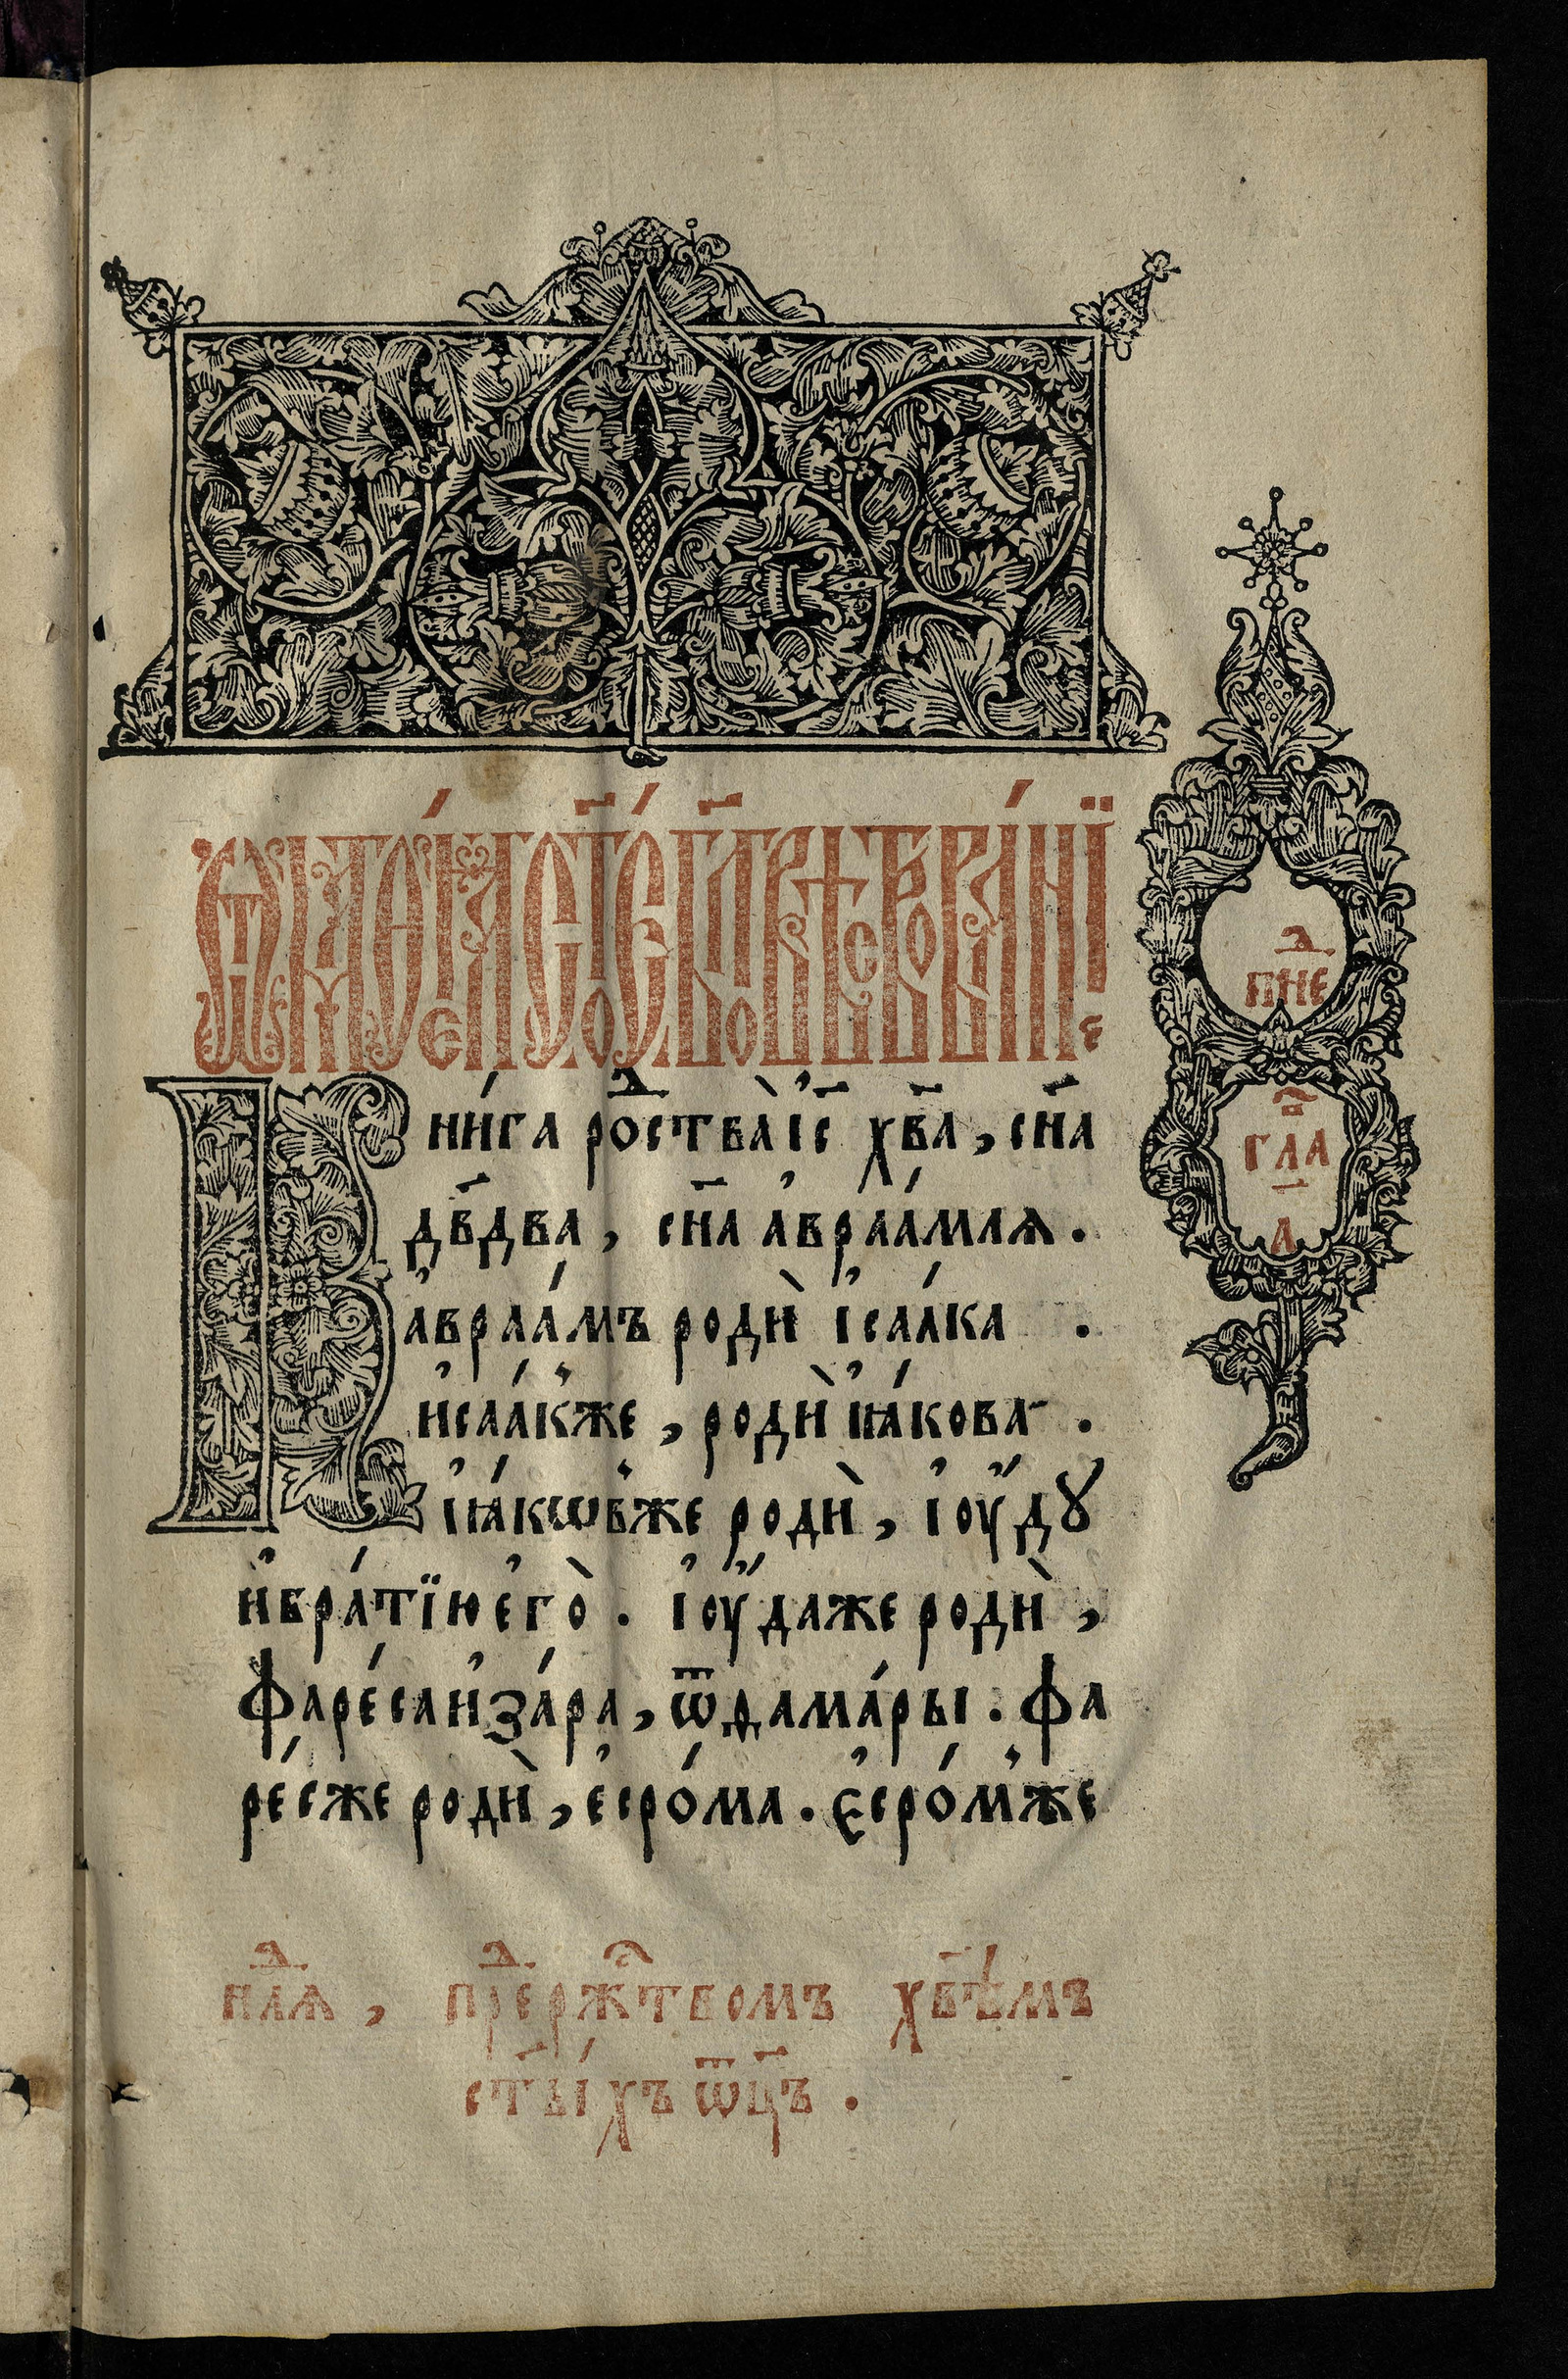 Ѿ матѳе́а ст҃о́е бл҃говѣствова́нїе
Кни́га роⷣства̀ і҆с҃ хв҃а, сн҃а
дв҃два, сн҃а а҆враа́млѧ.
а҆враа́мъ родѝ і҆саа́ка.
и҆саа́кꙿже, родѝ і҆ꙗ́кова.
і҆ꙗ́кѡвꙿже родѝ, і҆оу́дꙋ
и҆бра́тїю є҆го̀. і҆оу́даже родѝ,
фаре́са и҆за́ра, ѿдама́ры. фа
ре́сже родѝ, є҆сро́ма. Є҆сро́мꙿже
пнеⷣ
гл҃а
а҃
нлⷣѧ, преⷣржⷭ҇твомъ хв҃ѣмъ
ст҃ы́хъ ѿц҃ъ.